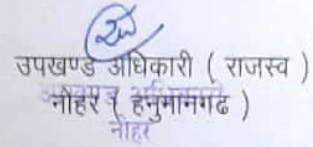 उपखण्ड अधिकारी ( राजस्व )
नोहर ( हनुमानगढ )
नोहर